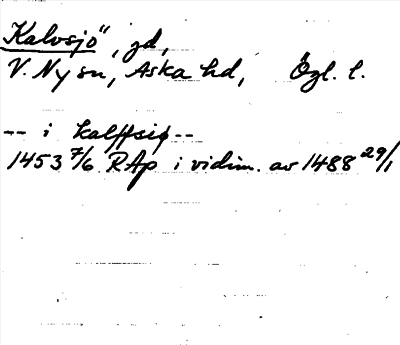 Kalvsjö, gd,
V. Ny sn, Aska hd, Ögl. l.
-- i kalffsiø --
1453 7/6 RAp i vidim. av 1488 29/1